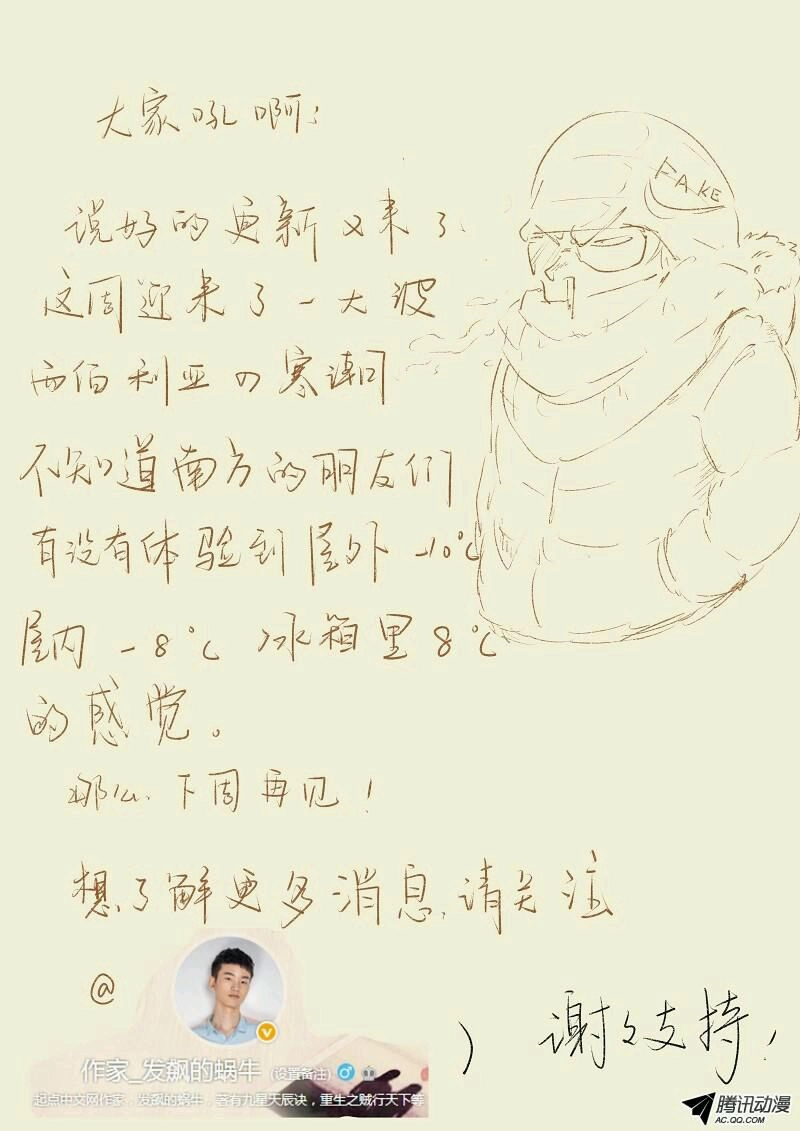 大家吼啊:
FAKE
说好的更新又来了
这周迎来了一大波
西伯利亚の寒潮
不知道南方的朋友们
有没有体验到屋外-10℃
屋内-8℃ 冰箱里8℃
的感觉。
那么.下周再见!
想了解更多消息,请关注
@
作家_发飙的蜗牛 (设置备注)
起点中文网作家,发飙的蜗牛,著有九星天辰诀,重生之贼行天下等
谢々支持!
腾讯动漫
AC.QQ.COM